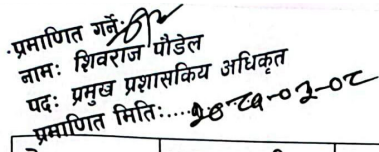 प्रमाणित गर्ने:
नाम: शिवराज पौडेल
पद: प्रमुख प्रशासकिय अधिकृत
प्रमाणित मिति:....